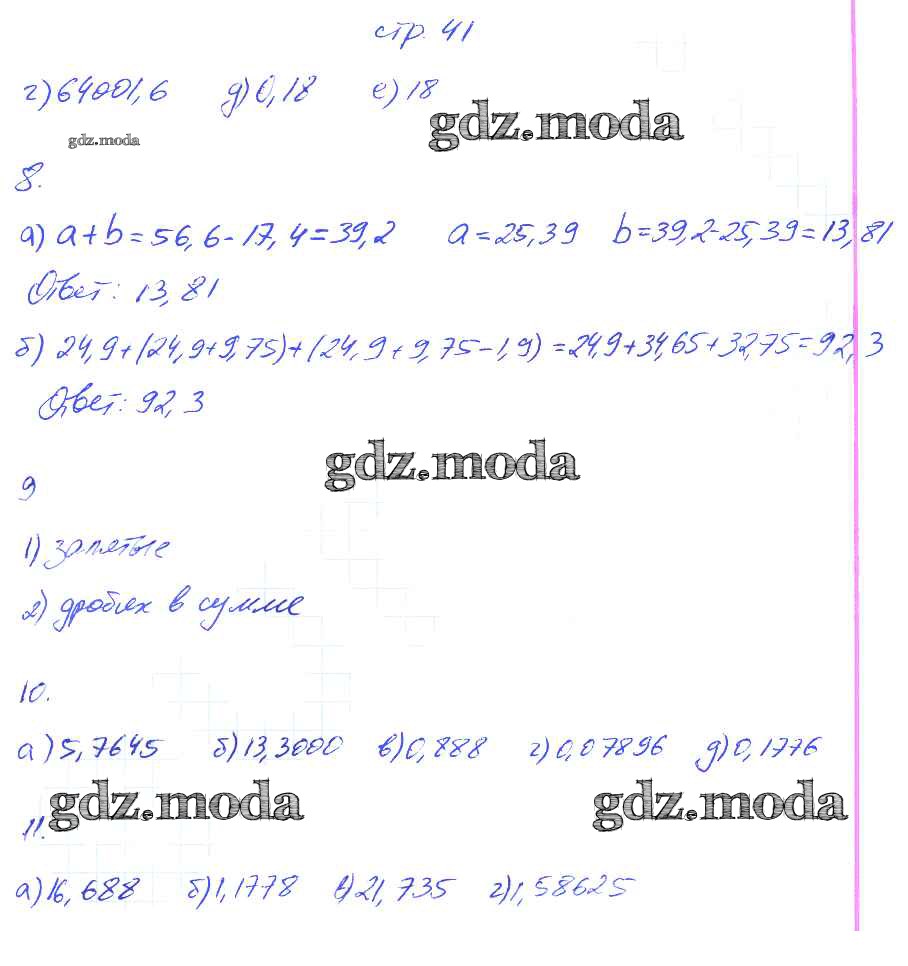 стр. 41
г) 64001,6 д) 0,18 е) 18
gdz.moda
gdz.moda
8.
а) a+b=56,6-17,4=39,2 a=25,39 b=39,2-25,39=13,81
Ответ: 13,81
б) 24,9+(24,9+9,75)+(24,9+9,75-1,9)=24,9+34,65+32,75=92,3
Ответ: 92,3
gdz.moda
9
1) запятые
2) дробях в сумме
10.
а) 5,7645 б) 13,3000 в) 0,888 г) 0,07896 д) 0,1776
gdz.moda gdz.moda
11.
а) 16,688 б) 1,1778 в) 21,735 г) 1,58625